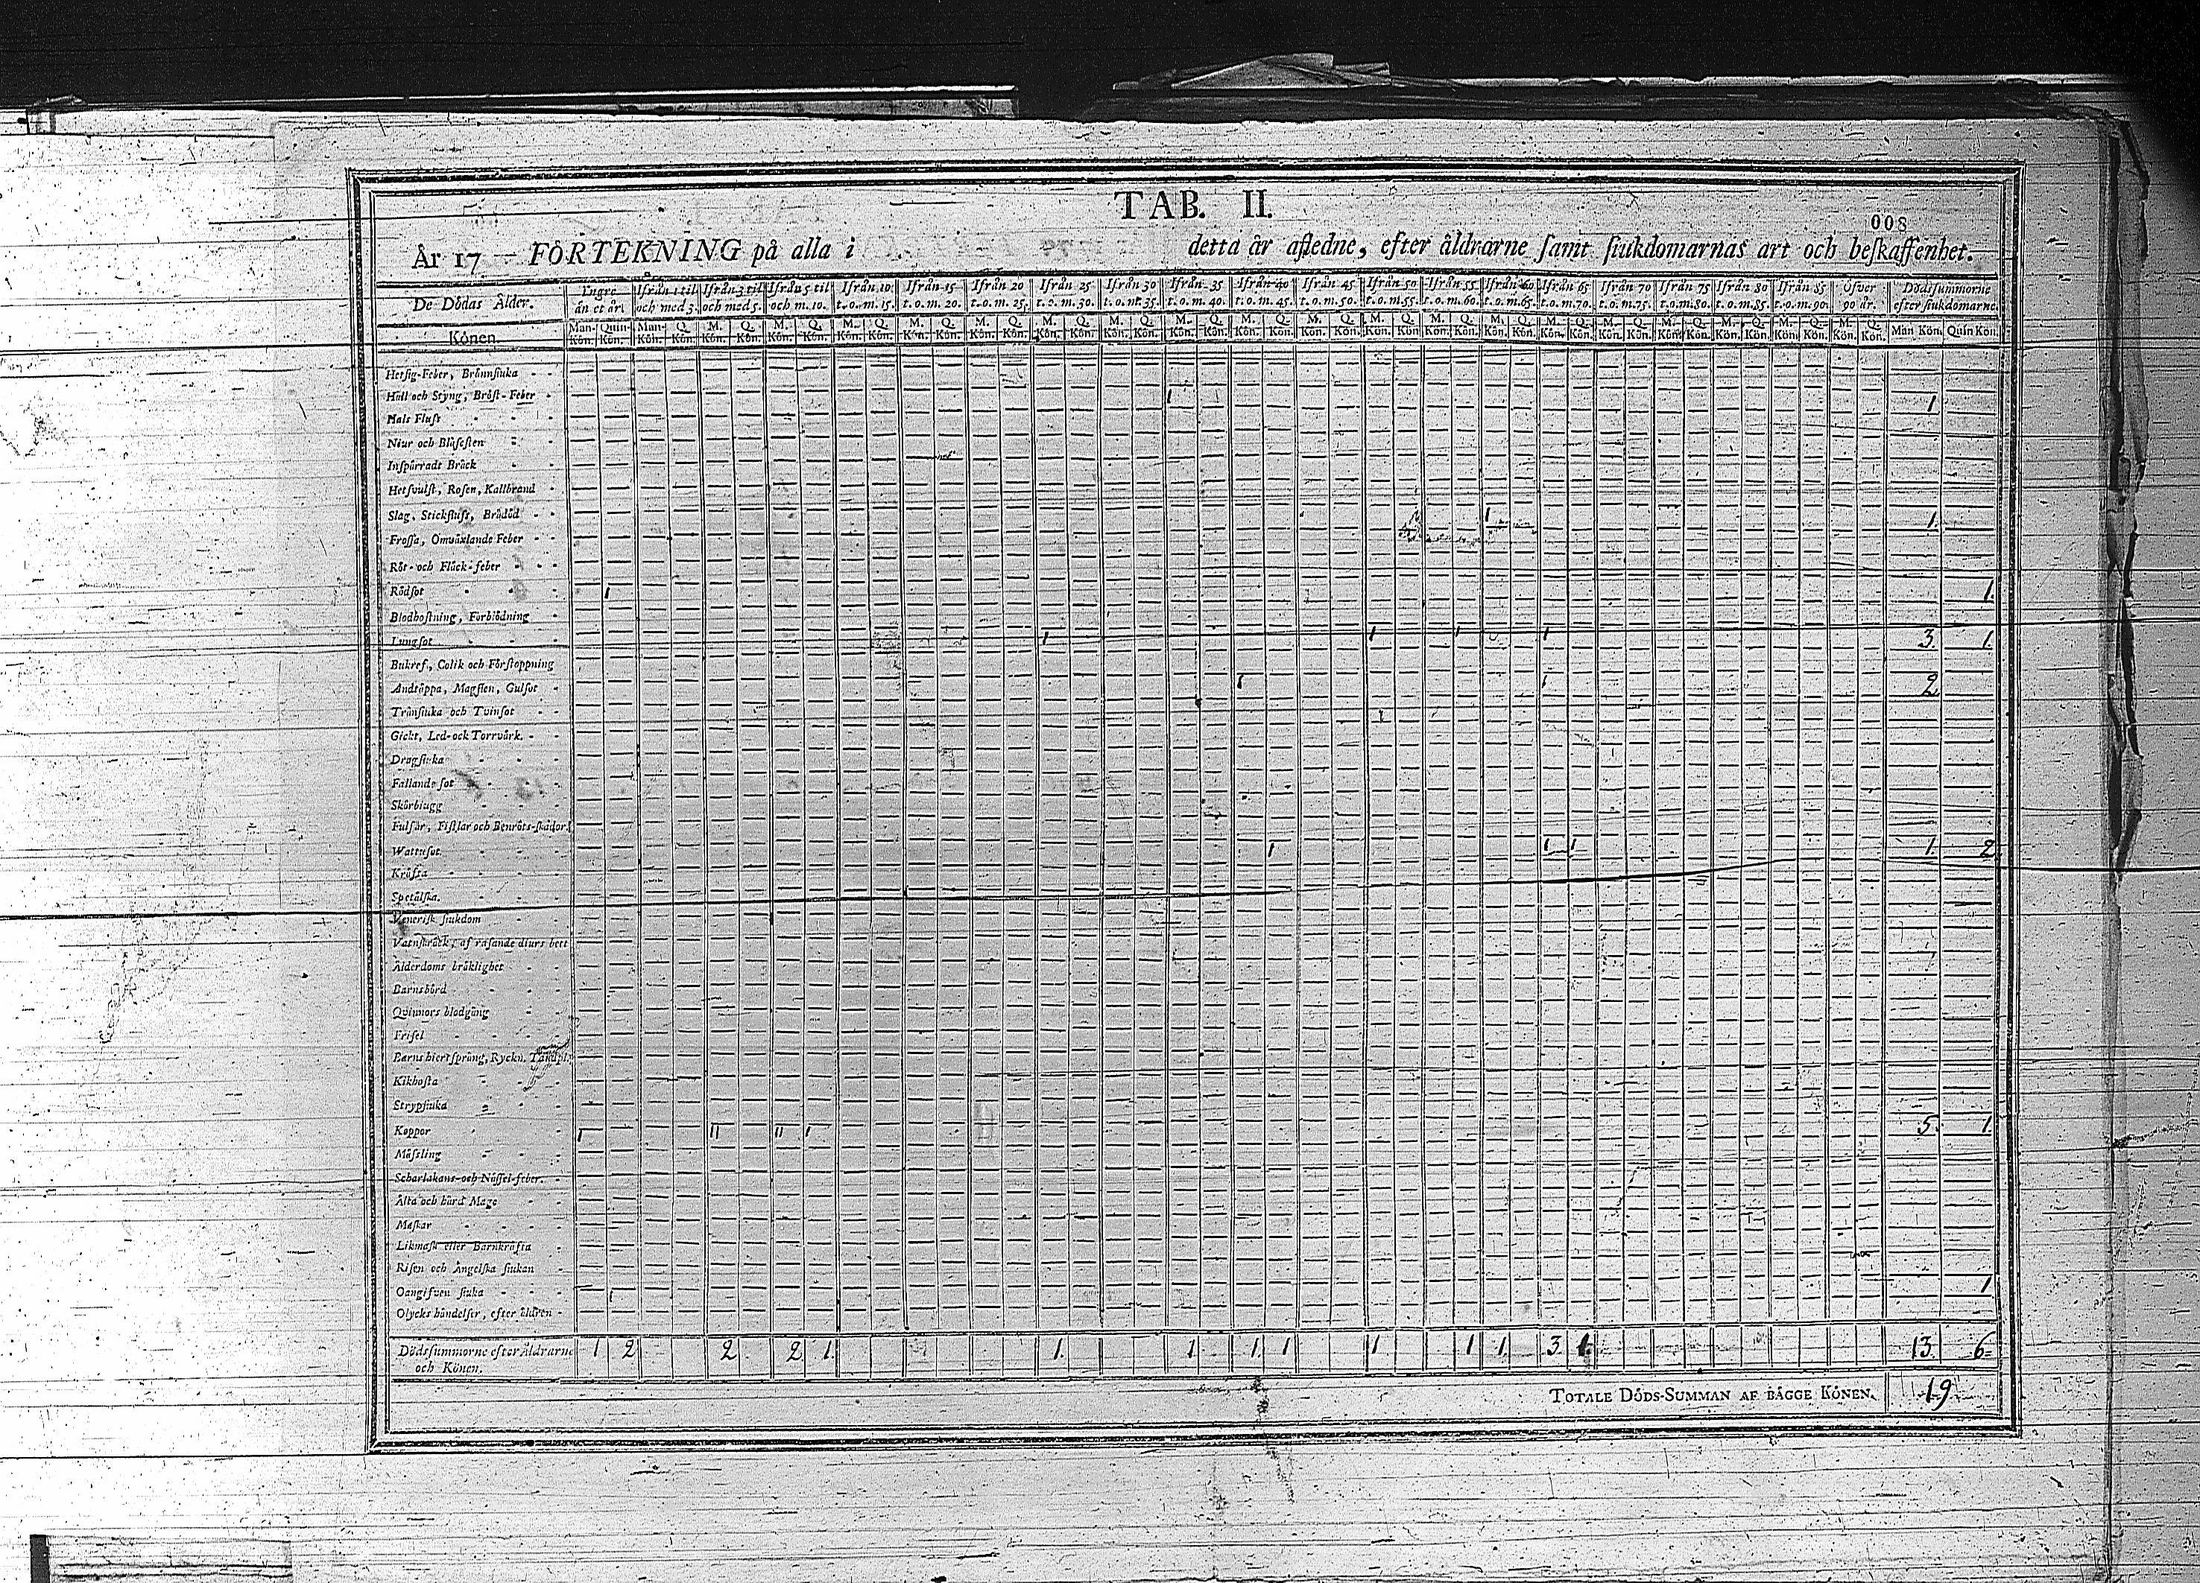 TAB. II.
008
År 17 — FÖRTEKNING på alla i detta år afledne, efter åldrarne samt siukdomarnas art och beskaffenhet.
De Dödas Ålder. Yngre än et år. Ifrån 1 til och med 3. Ifrån 3 til och med 5. Ifrån 5 til och m. 10. Ifrån 10 t.o.m. 15. Ifrån 15 t.o.m. 20. Ifrån 20 t.o.m. 25. Ifrån 25 t.o.m. 30. Ifrån 30 t.o.m. 35. Ifrån 35 t.o.m. 40. Ifrån 40 t.o.m. 45. Ifrån 45 t.o.m. 50. Ifrån 50 t.o.m. 55. Ifrån 55 t.o.m. 60. Ifrån 60 t.o.m. 65. Ifrån 65 t.o.m. 70. Ifrån 70 t.o.m. 75. Ifrån 75 t.o.m. 80. Ifrån 80 t.o.m. 85. Ifrån 85 t.o.m. 90. Öfver 90 år. Dödssummorne efter siukdomarne.
Könen. Man-Kön. Quin-Kön. Man-Kön. Q. Kön. M. Kön. Q. Kön. M. Kön. Q. Kön. M. Kön. Q. Kön. M. Kön. Q. Kön. M. Kön. Q. Kön. M. Kön. Q. Kön. M. Kön. Q. Kön. M. Kön. Q. Kön. M. Kön. Q. Kön. M. Kön. Q. Kön. M. Kön. Q. Kön. M. Kön. Q. Kön. M. Kön. Q. Kön. M. Kön. Q. Kön. M. Kön. Q. Kön. M. Kön. Q. Kön. M. Kön. Q. Kön. M. Kön. Q. Kön. M. Kön. Q. Kön. Man Kön. Quin Kön.
Hetsig-Feber, Brännsiuka
Håll och Styng, Bröst-Feber 1 1
Hals Fluss
Niur och Blåsesten
Inspärradt Bråck
Hetsvulst, Rosen, Kallbrand
Slag, Stickfluss, Brådöd 1 1.
Frossa, Omväxlande Feber
Röt- och Fläck-feber
Rödsot 1 1.
Blodhostning, Förblödning
Lungsot 1 1 1 1 3. 1.
Bukref, Colik och Förstoppning
Andtäppa, Magsten, Gulsot 1 1 2
Trånsiuka och Tvinsot
Gickt, Led- och Torrvärk.
Dragsiuka
Fallande sot
Skörbiugg
Fulsår, Fistlar och Benröts-skador
Wattusot 1 1 1 1. 2
Kräfta
Spetälska.
Venerisk siukdom
Vatnskräck, af rasande diurs bett
Ålderdoms bräklighet
Barnsbörd
Qvinnors blodgång
Frisel
Barns hiertsprång, Ryckn. Tandpl.
Kikhosta
Strypsiuka
Koppor 1 11 11 1 5. 1
Mässling
Scharlakans- och Nässel-feber.
Älta och hård Mage
Maskar
Likmask eller Barnkräfta
Risen och Ängelska siukan
Oangifven siuka 1
Olycks händelser, efter äldren
Dödssummorne efter Åldrarne och Könen. 1 2 2 2. 1. 1. 1 1. 1 1 1 1. 3 1. 13. 6
TOTALE DÖDS-SUMMAN AF BÄGGE KÖNEN. 19.